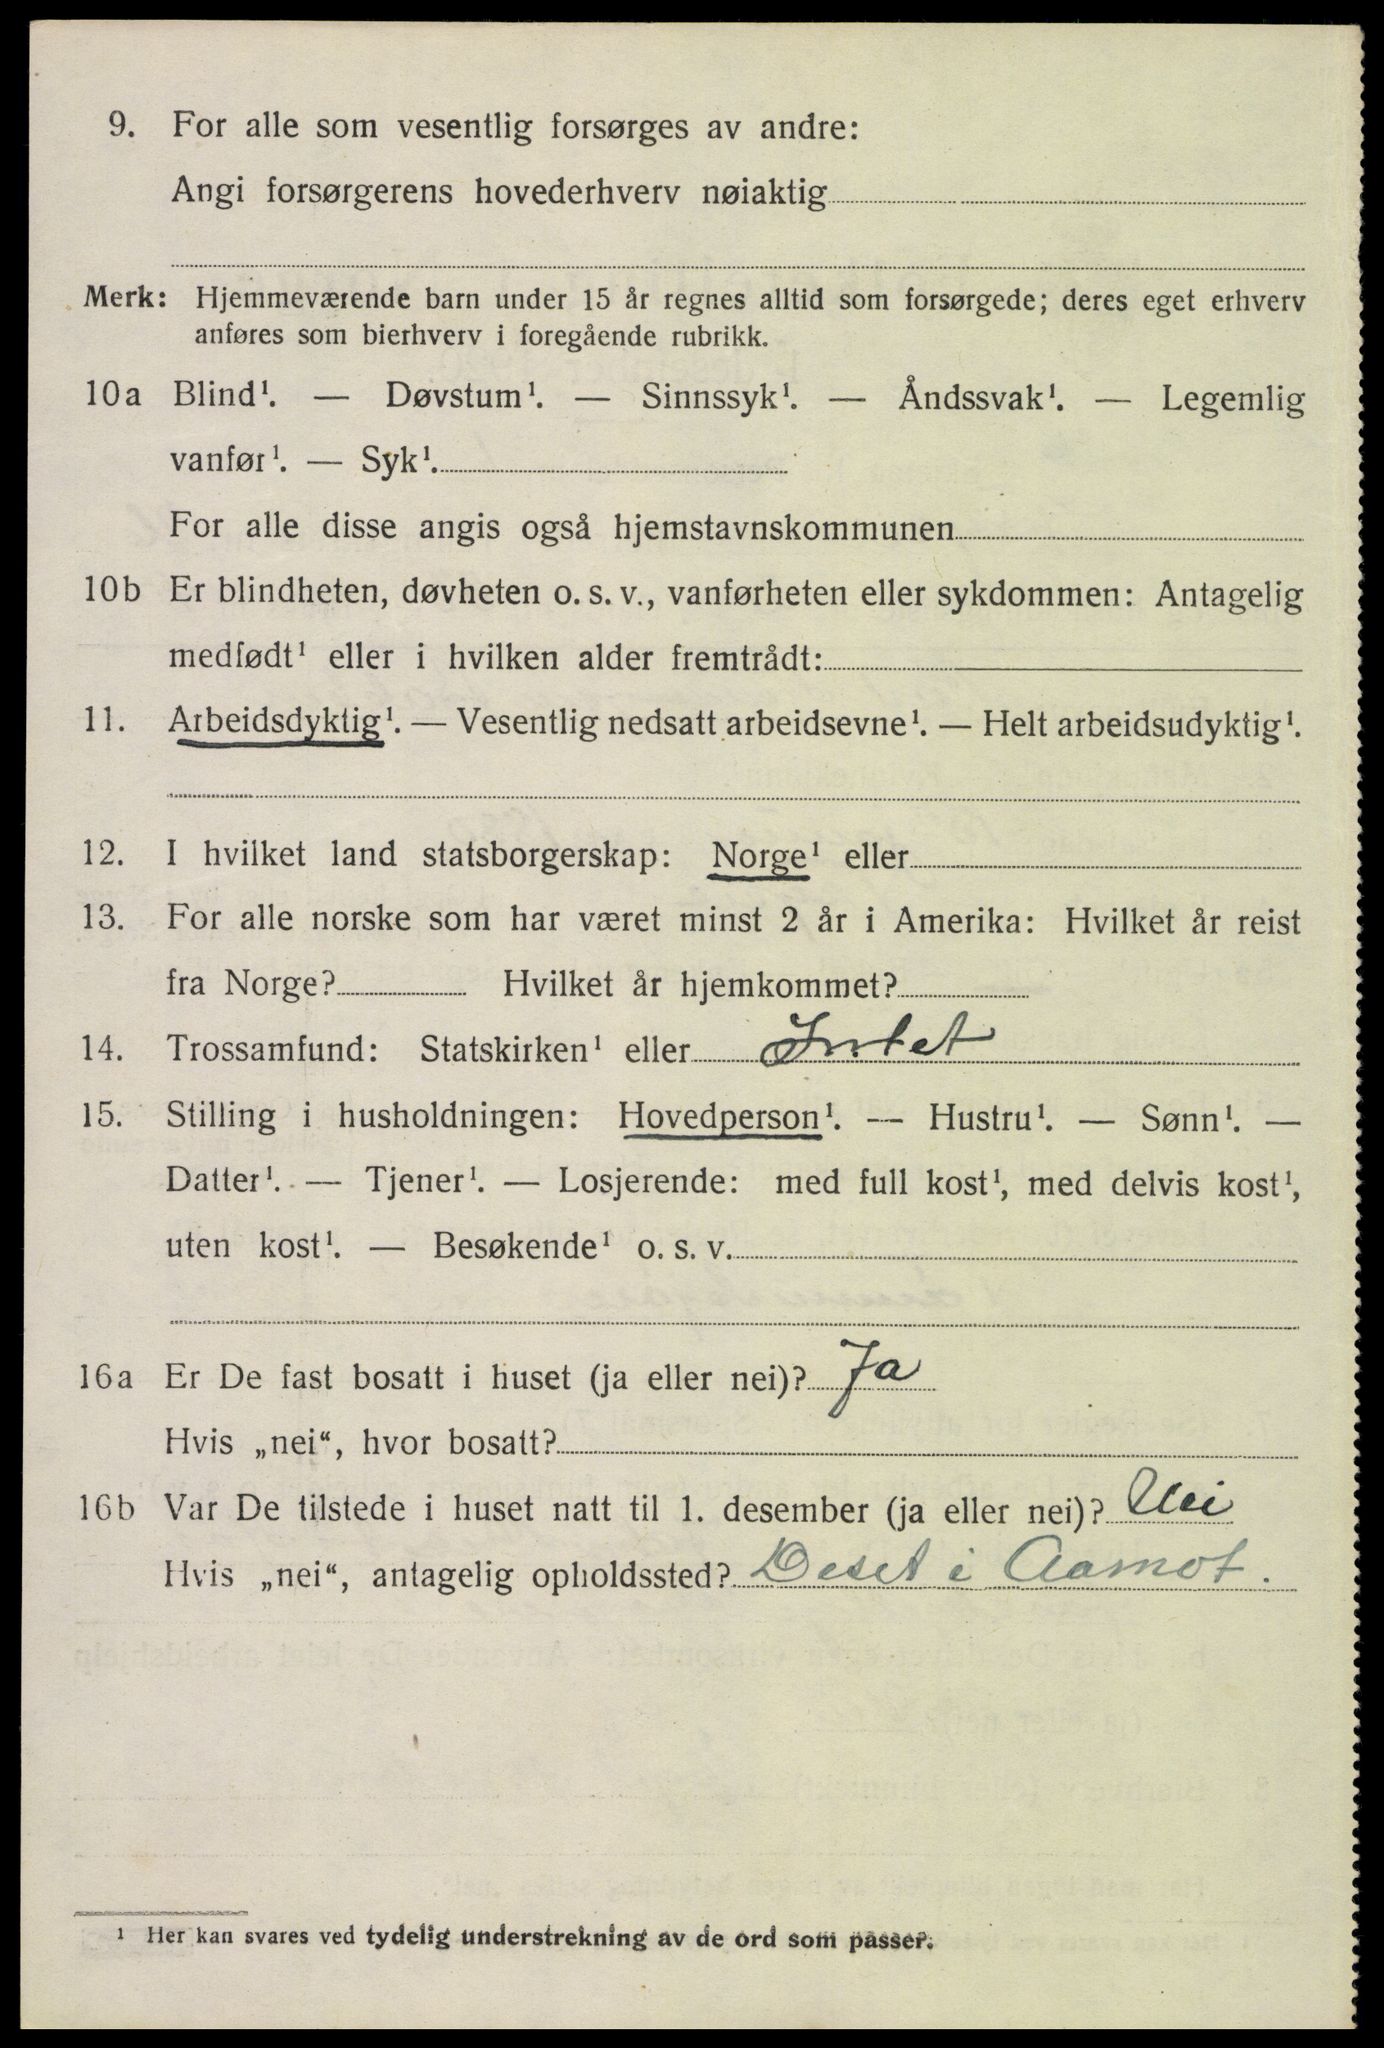 9. For alle som vesentlig forsørges av andre:
Angi forsørgerens hovederhverv nøiaktig
Merk: Hjemmeværende barn under 15 år regnes alltid som forsørgede; deres eget erhverv
anføres som bierhverv i foregående rubrikk.
10a Blind¹. — Døvstum¹. — Sinnssyk¹. — Åndssvak¹. — Legemlig
vanfør¹. — Syk¹.
For alle disse angis også hjemstavnskommunen
10b Er blindheten, døvheten o. s. v., vanførheten eller sykdommen: Antagelig
medfødt¹ eller i hvilken alder fremtrådt:
11. Arbeidsdyktig¹. — Vesentlig nedsatt arbeidsevne¹. — Helt arbeidsudyktig¹.
12. I hvilket land statsborgerskap: Norge¹ eller
13. For alle norske som har været minst 2 år i Amerika: Hvilket år reist
fra Norge? Hvilket år hjemkommet?
14. Trossamfund: Statskirken¹ eller Intet
15. Stilling i husholdningen: Hovedperson¹. — Hustru¹. — Sønn¹. —
Datter¹. — Tjener¹. — Losjerende: med full kost¹, med delvis kost¹,
uten kost¹. — Besøkende¹ o. s. v.
16a Er De fast bosatt i huset (ja eller nei)? Ja
Hvis „nei“, hvor bosatt?
16b Var De tilstede i huset natt til 1. desember (ja eller nei)? Nei
Hvis „nei“, antagelig opholdssted? Deset i Aamot.
¹ Her kan svares ved tydelig understrekning av de ord som passer.